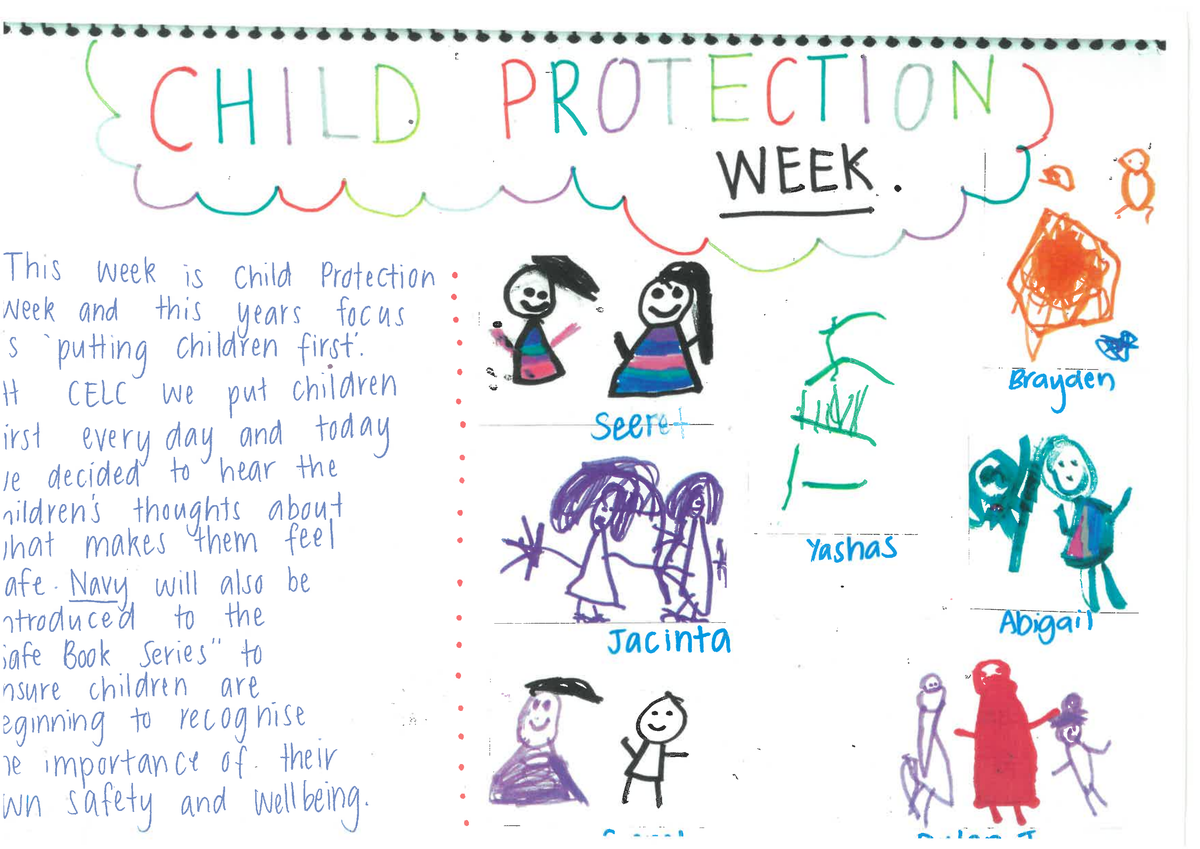 CHILD PROTECTION
WEEK.
This week is Child Protection
Week and this years focus
s 'putting children first'.
At CELC we put children
irst every day and today
we decided to hear the
hildren's thoughts about
what makes them feel
afe. Navy will also be
ntroduced to the
Safe Book Series" to
nsure children are
eginning to recognise
he importance of their
wn safety and wellbeing.
Seeret
Brayden
Yashas
Jacinta
Abigail